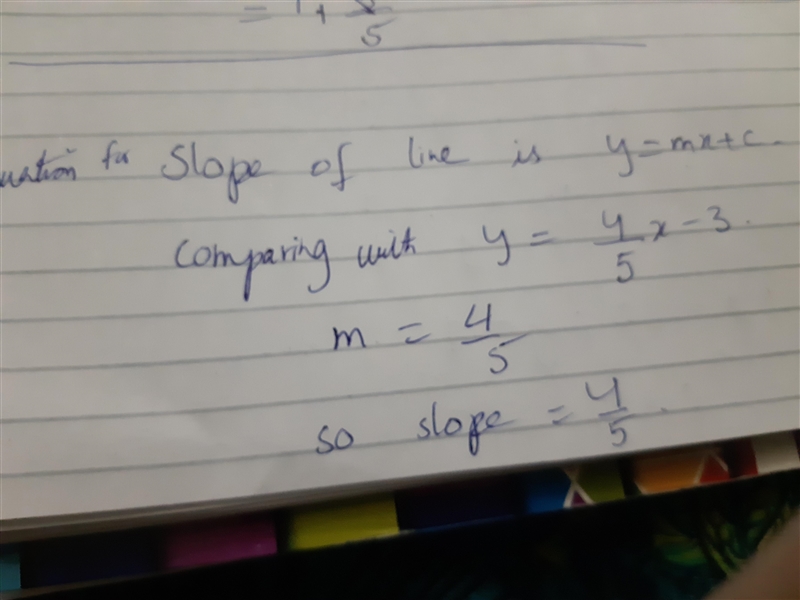 Slope of line is y=mx+c.
Comparing with y = 4/5 x - 3.
m = 4/5
so slope = 4/5.